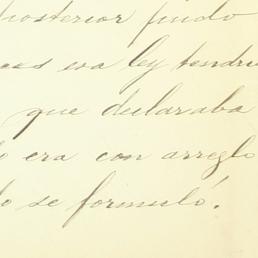 posterior pudo
esa ley tendri
que declaraba
era con arreglo
lo se formuló.